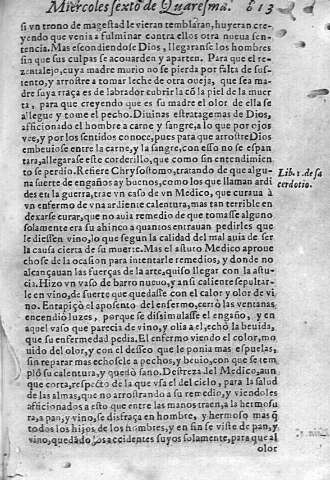 Miercoles sexto de Quaresma. 613
si vn trono de magestad le vieran temblaran, huyeran cre-
yendo que venia a fulminar contra ellos otra nueua sen-
tencia. Mas escondiendose Dios, llegaranse los hombres
sin que sus culpas se acouarden y aparten. Para que el re-
zentalejo, cuya madre murio no se pierda por falta de sus-
tento, y arrostre a tomar leche de otra oueja, que sea ma-
dre suya traça es de labrador cubrirla cõ la piel de la muer
ta, para que creyendo que es su madre el olor de ella se
allegue y tome el pecho. Diuinas estratagemas de Dios,
aficionado el hombre a carne y sangre, a lo que por ojos
vee, y por los sentidos conoce, pues para que arrostre Dios
embeuiose entre la carne, y la sangre, con esso no se espan
tara, allegarase este corderillo, que como sin entendimien
to se perdio. Refiere Chrysostomo, tratando de que algu-
na suerte de engaños ay buenos, como los que llaman ardi
des en la guerra, trae vn caso de vn Medico, que curaua à
vn enfermo de vna ardiente calentura, mas tan terrible en
dexarse curar, que no auia remedio de que tomasse alguno
solamente era su ahinco a quantos entrauan pedirles que
le diessen vino, lo que segun la calidad del mal auia de ser
la causa cierta de su muerte. Mas el astuto Medico aproue
chose de la ocasion para intentarle remedios, y donde no
alcançauan las fuerças de la arte, quiso llegar con la astu-
cia. Hizo vn vaso de barro nueuo, y ansi caliente sepultar-
le en vino, de suerte que quedasse con el calor y olor de vi
no. Entapiçò el aposento del enfermo, cerrò las ventanas,
encendiò luzes, porque se dissimulasse el engaño, y en
aquel vaso que parecia de vino, y olia a el, echò la beuida,
que su enfermedad pedia. El enfermo viendo el color, mo
uido del olor, y con el desseo que le ponia mas espuelas,
sin reparar mas echosele a pechos, y beuio, con que se tem
plò su calentura, y quedò sano. Destreza del Medico, aun
que corta, respecto de la que vsa el del cielo, para la salud
de las almas, que no arrostrando a su remedio, y viendoles
afficionados a esto que entre las manos traen, a la hermosu
ra, a pan, y vino, se disfraça en hombre, y hermoso mas q̃
todos los hijos de los hombres, y en fin se viste de pan, y
vino, quedãdo los accidentes suyos solamente, para que al
olor
Lib. 1. de sa
cerdotio.